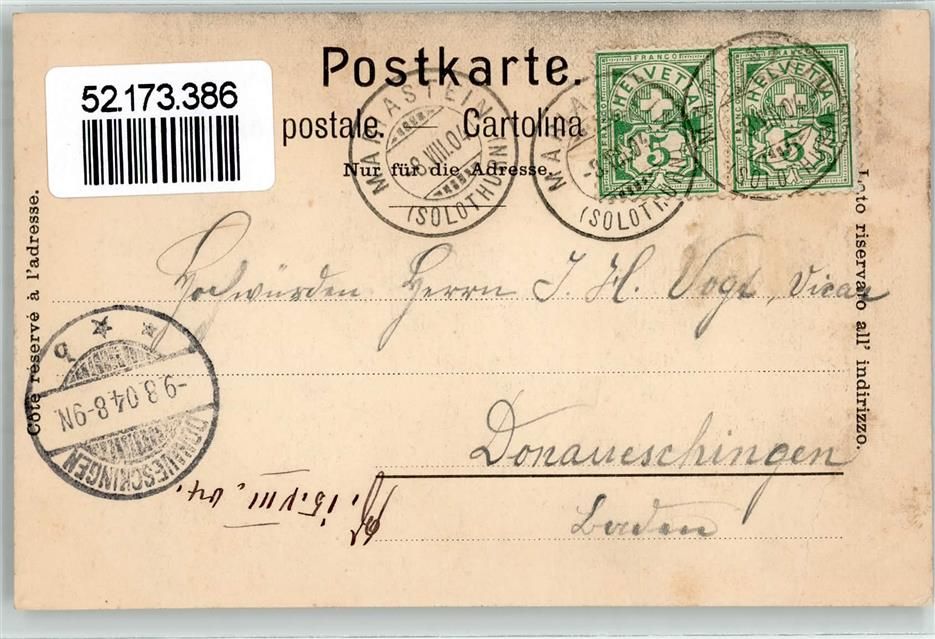 Postkarte.
52.173.386
postale. — Cartolina
Nur für die Adresse.
MARIASTEIN
8.VIII.04
(SOLOTHURN)
MARIASTEIN
(SOLOTHURN)
FRANCO
HELVETIA
5
FRANCO
HELVETIA
5
Côté réservé à l'adresse.
Lato riservato all' indirizzo.
Hochwürden Herrn J. H. Vogt, Vicar
Donaueschingen
Baden
DONAUESCHINGEN
-9.8.04.8-9N.
15.VIII.04.